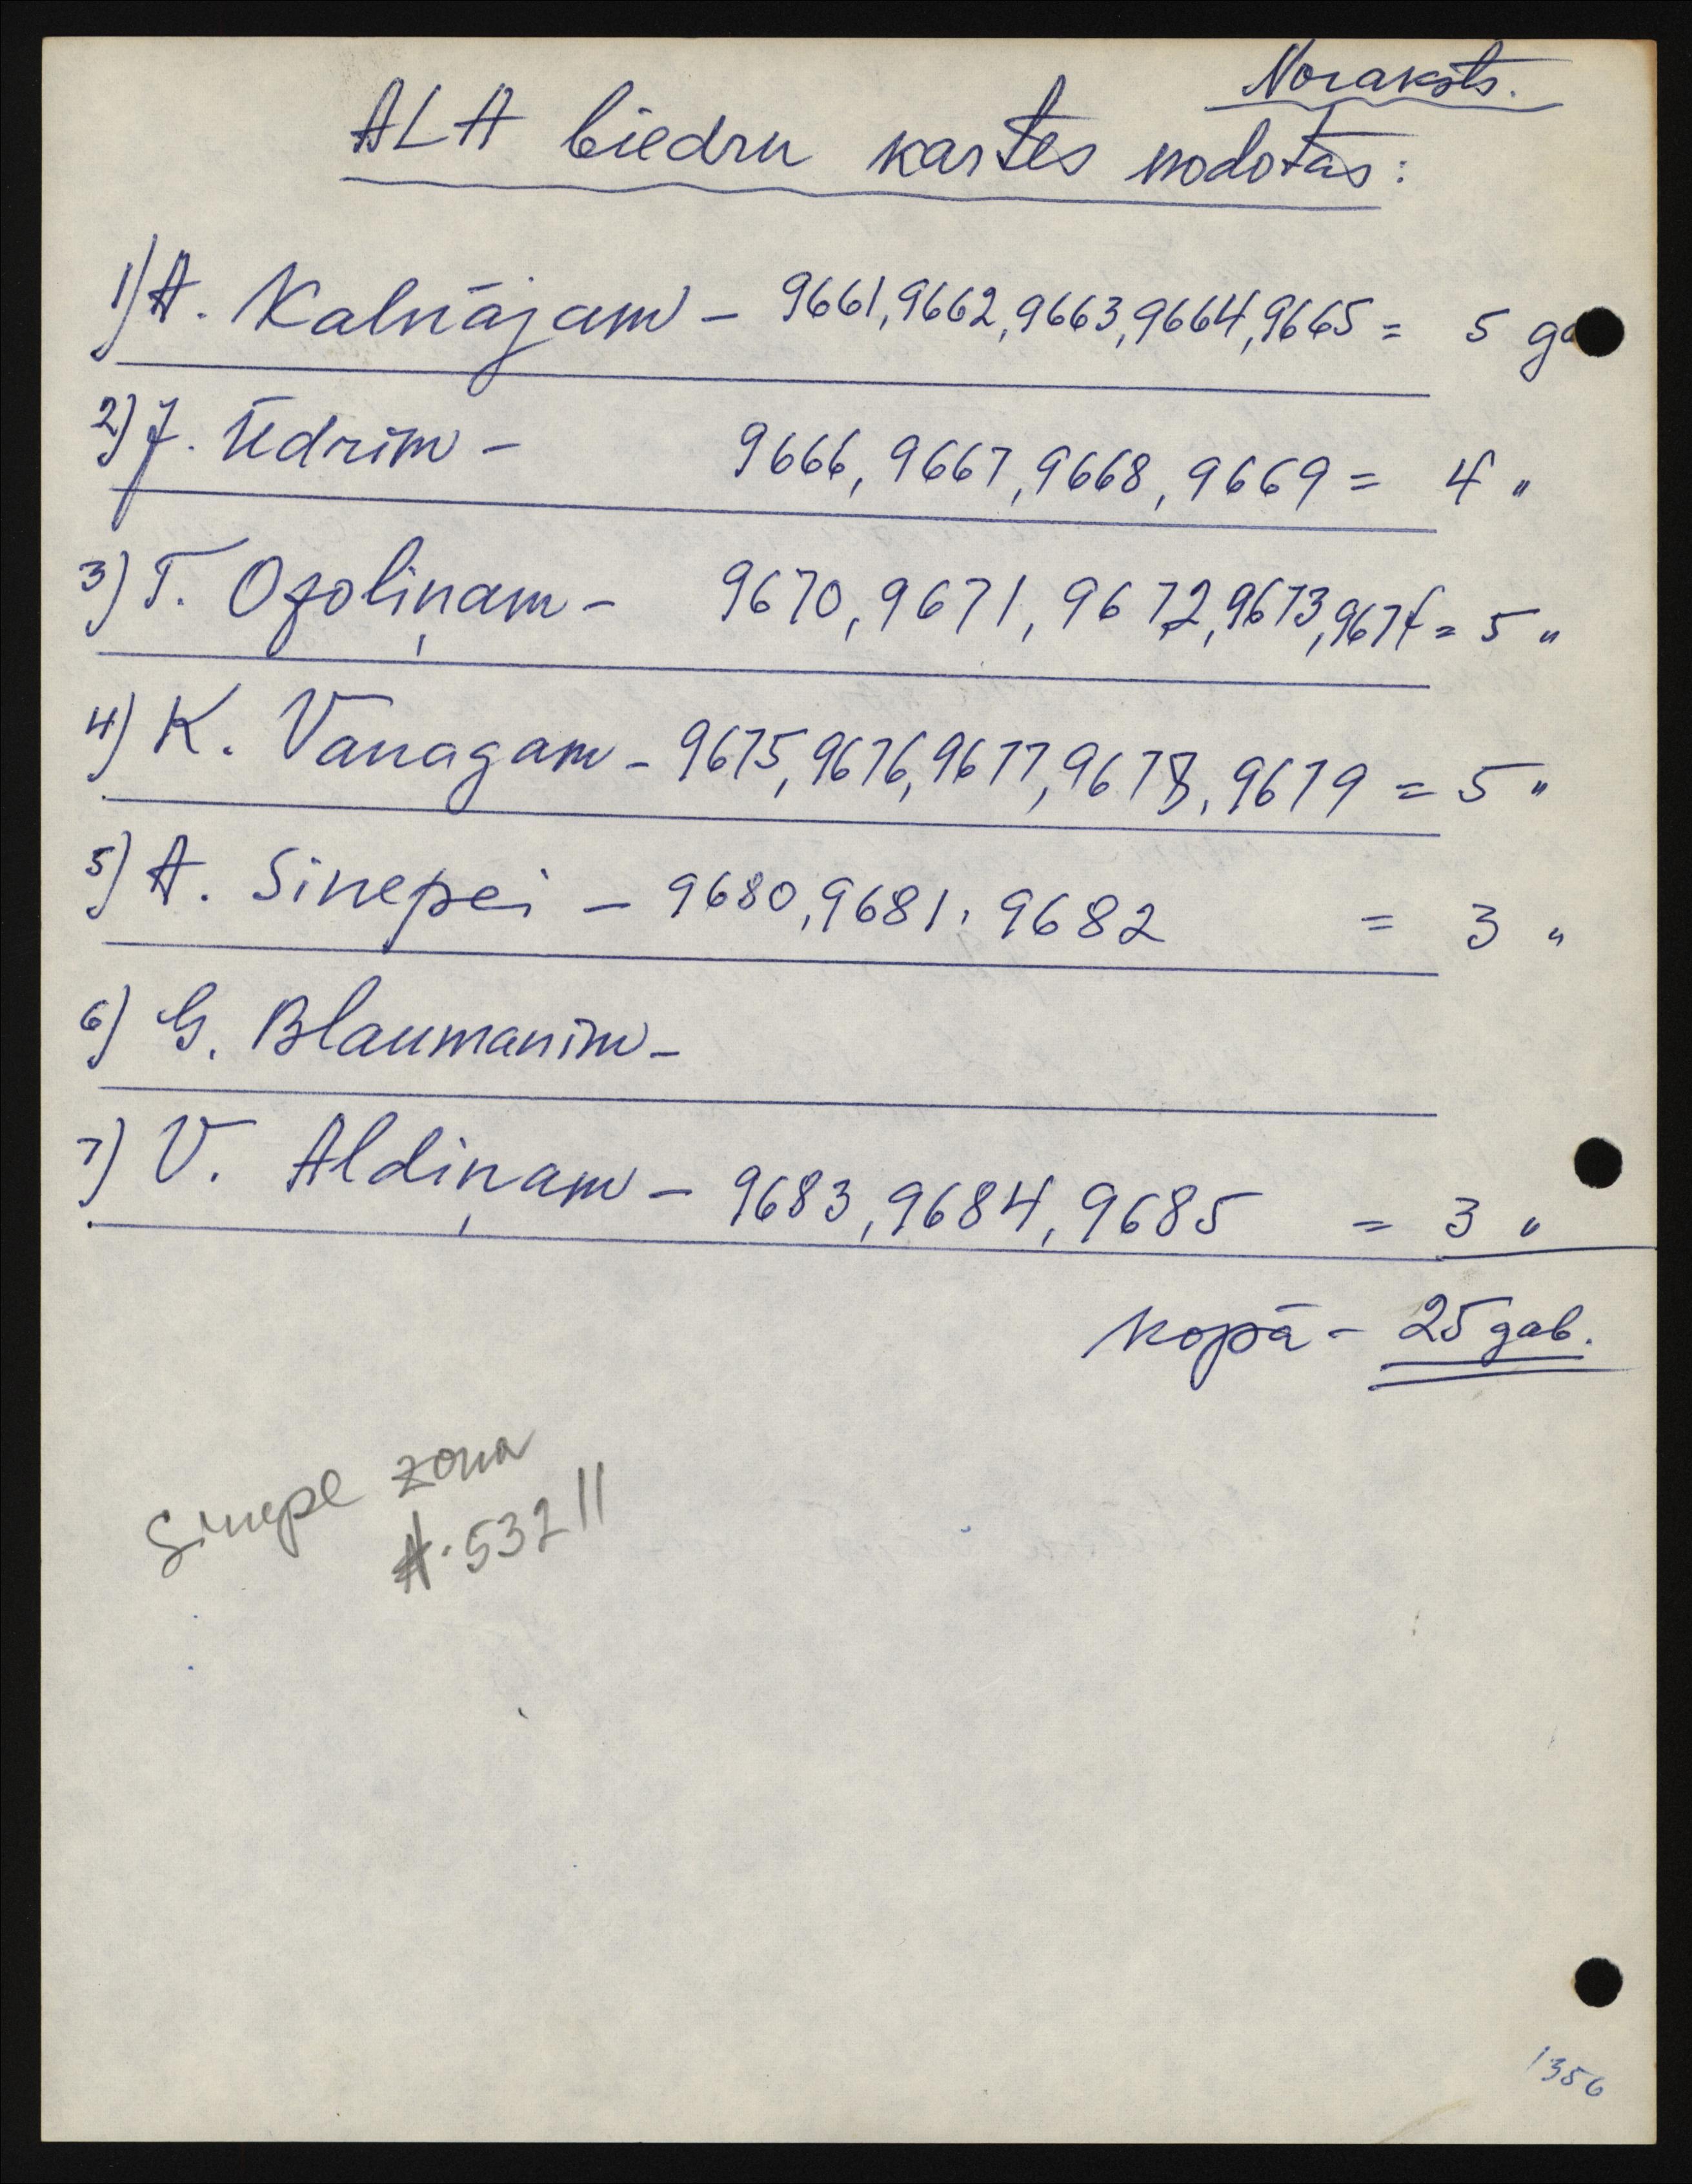 Noraksts.
ALA biedru kartes nodotas:
1) A. Kalnājam - 9661, 9662, 9663, 9664, 9665 = 5 ga
2) J. Ūdrim - 9666, 9667, 9668, 9669 = 4 "
3) T. Ozoliņam - 9670, 9671, 9672, 9673, 9674 = 5 "
4) K. Vanagam - 9675, 9676, 9677, 9678, 9679 = 5 "
5) A. Sinepei - 9680, 9681, 9682 = 3 "
6) G. Blaumanim -
7) V. Aldiņam - 9683, 9684, 9685 = 3 "
kopā - 25 gab.
Sinepe zona
A. 53211
1356